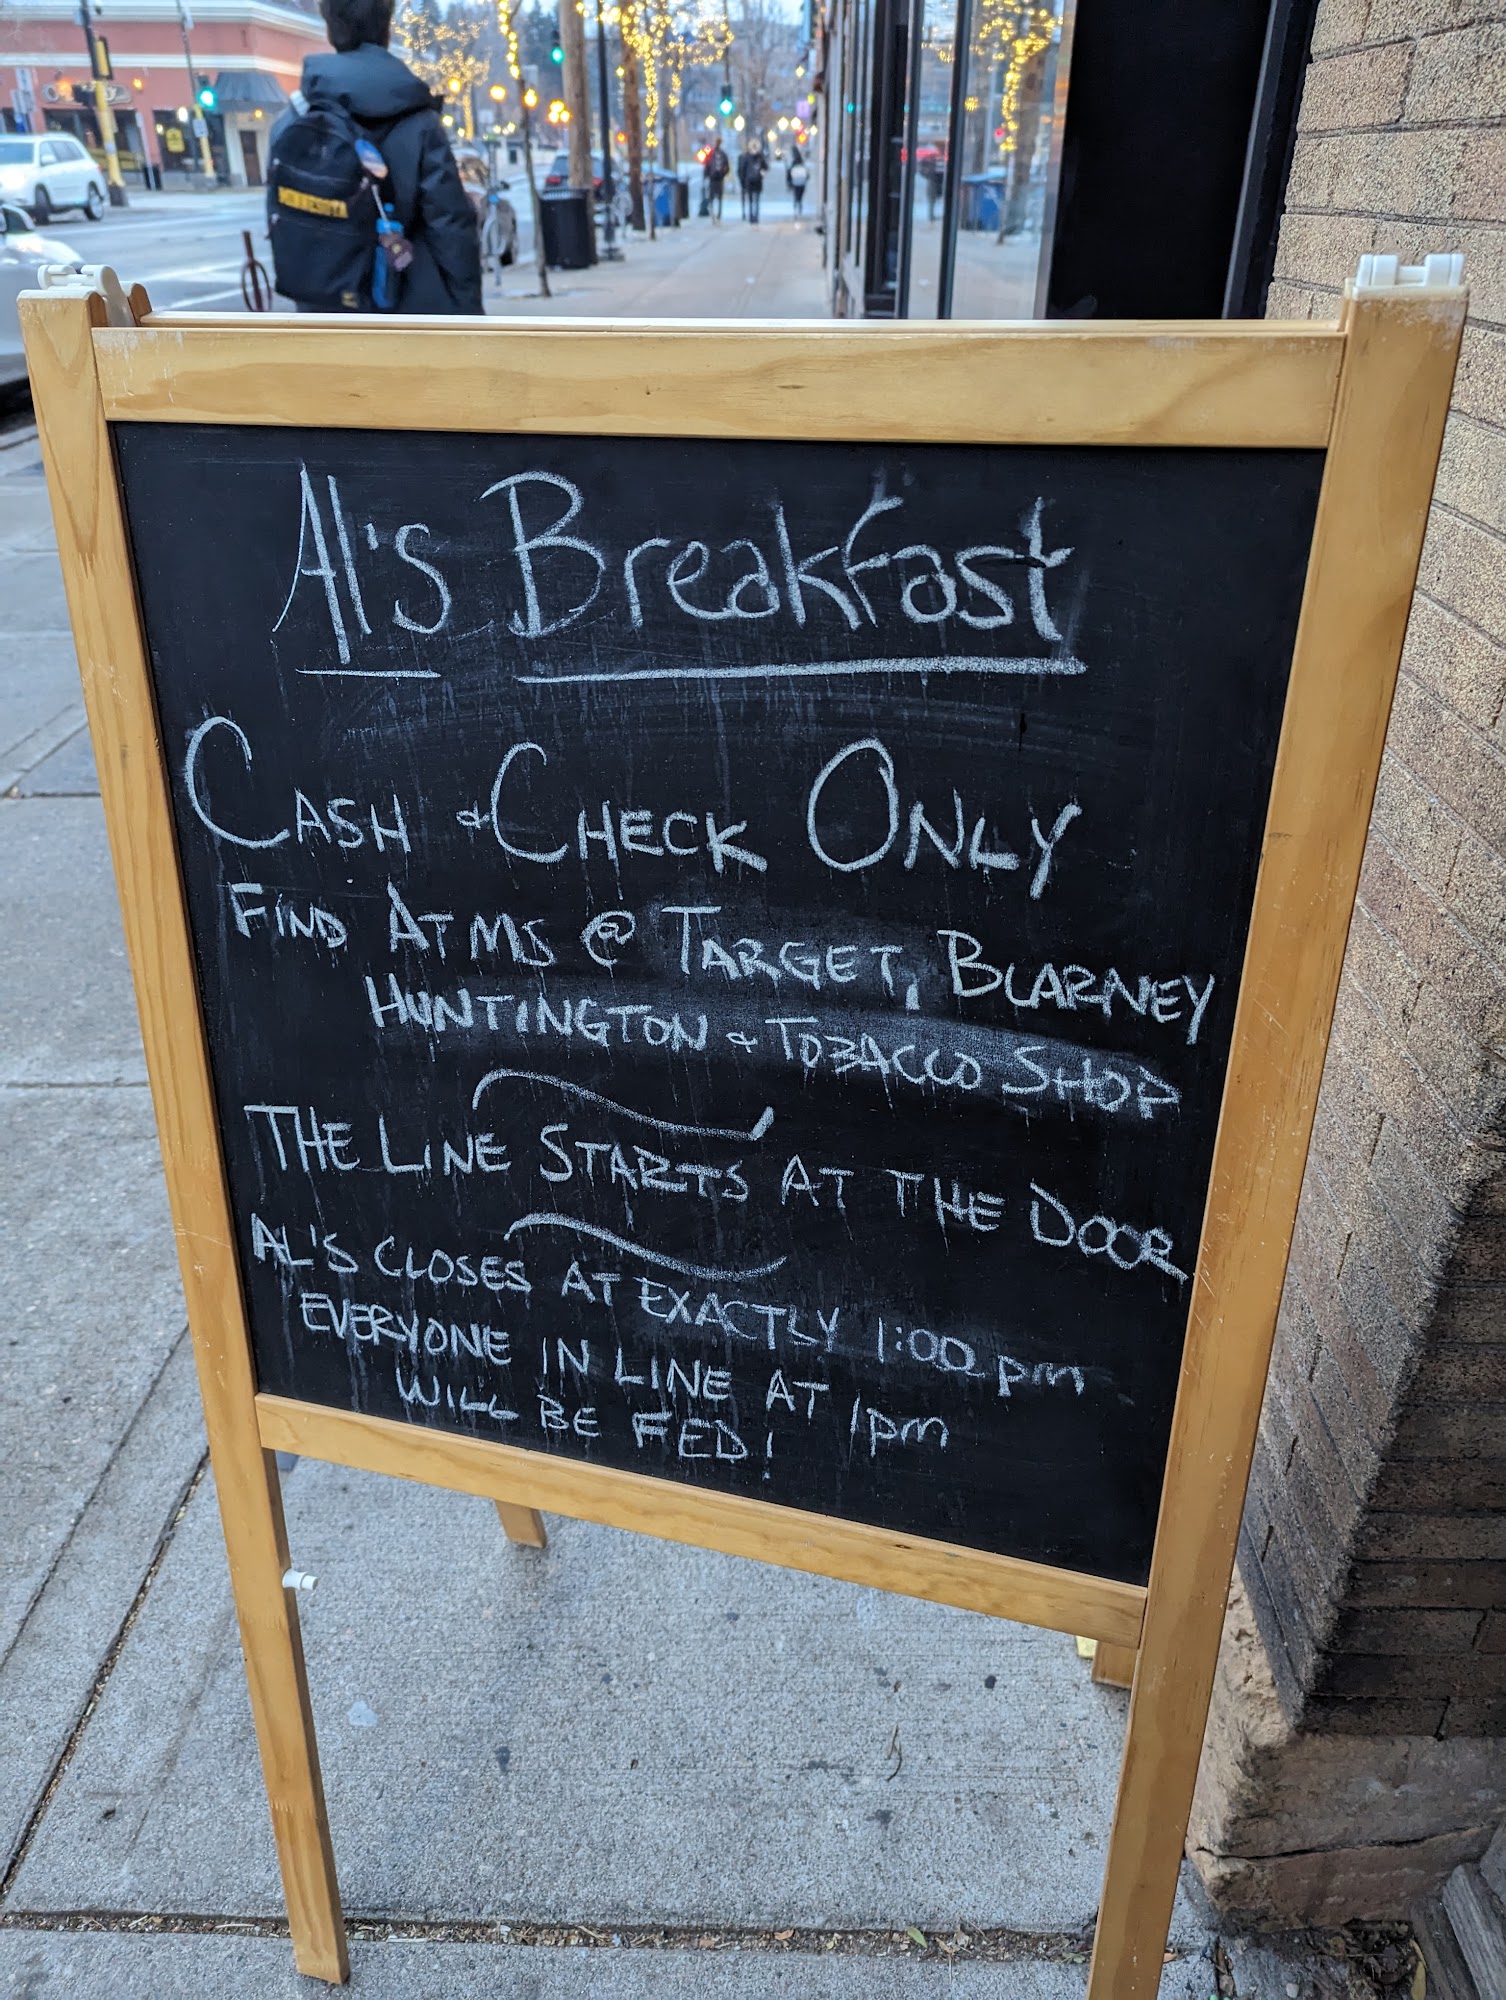 MINNESOTA
Al's Breakfast
CASH & CHECK ONLY
FIND ATMS @ TARGET, BLARNEY
HUNTINGTON & TOBACCO SHOP
THE LINE STARTS AT THE DOOR
AL'S CLOSES AT EXACTLY 1:00 pm
EVERYONE IN LINE AT 1pm
WILL BE FED!